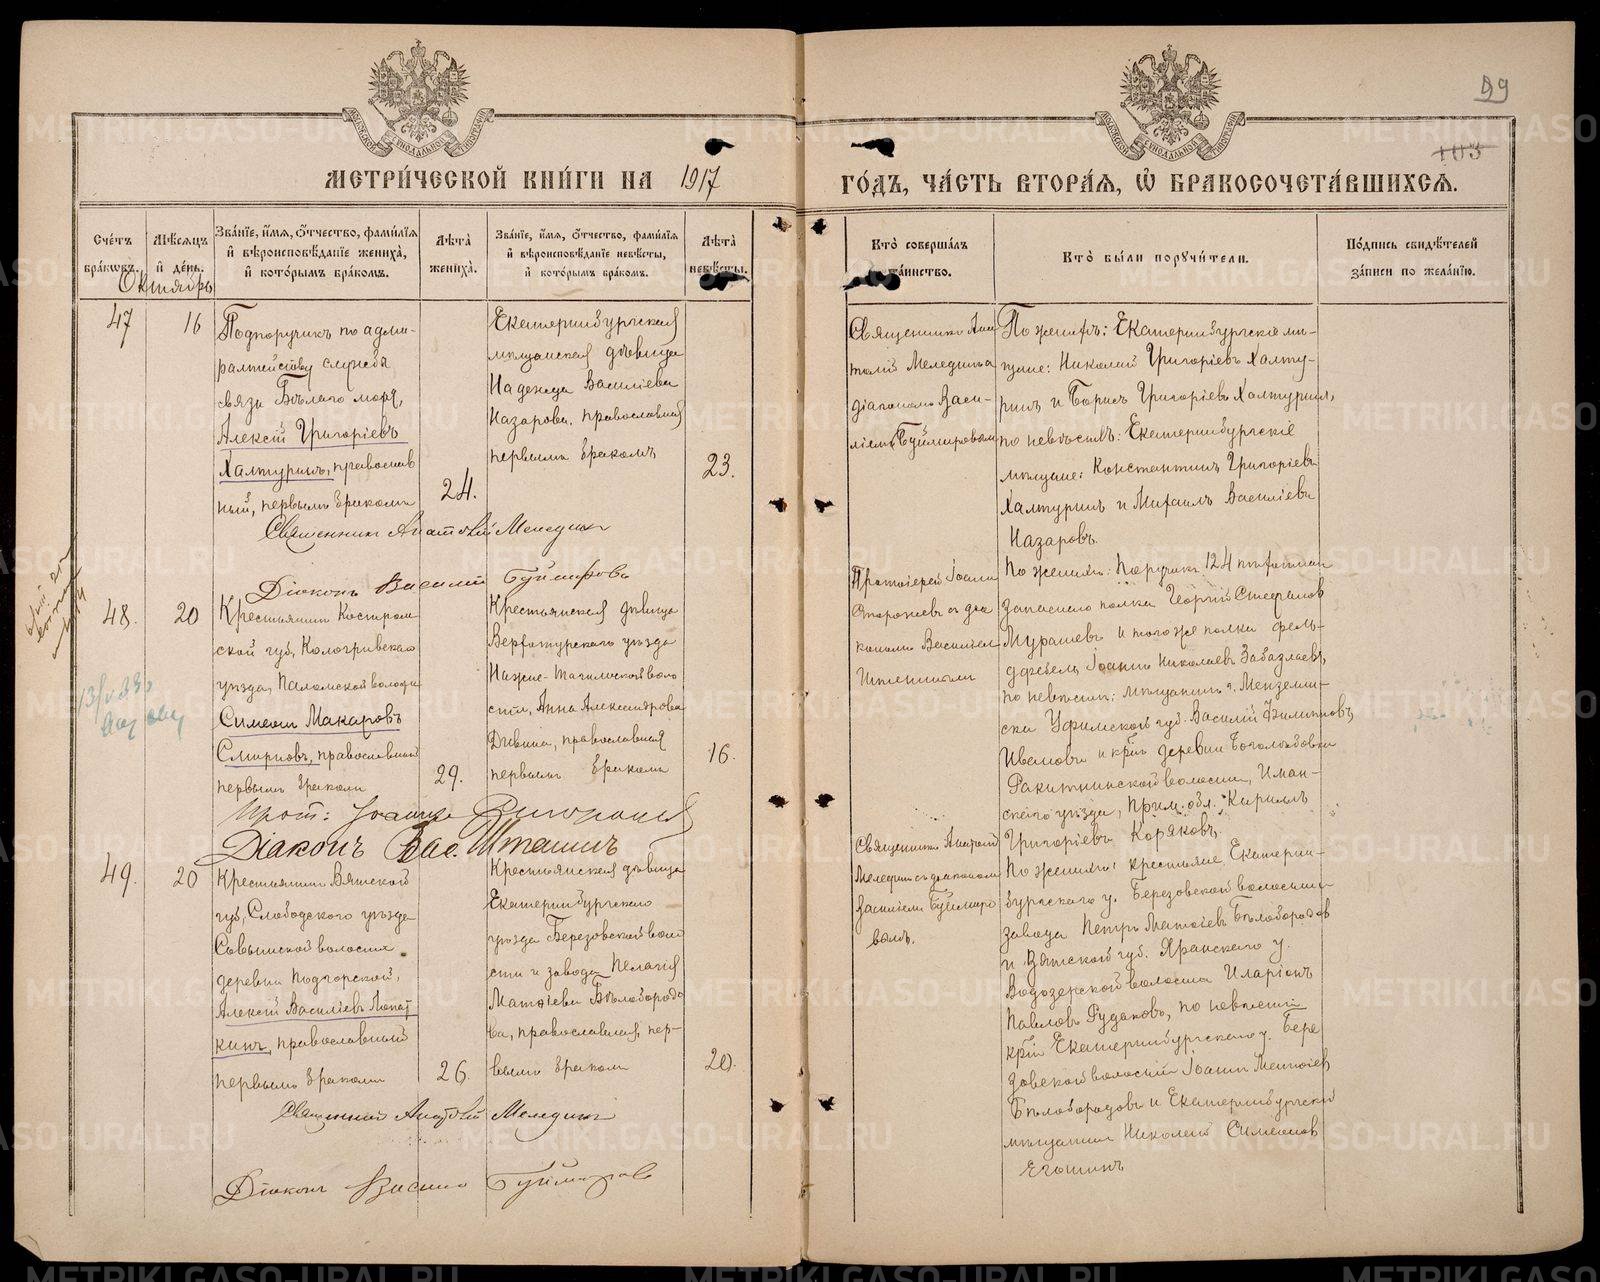 99
103
МОСКОВСКОЙ СѴНОДАЛЬНОЙ ТИПОГРАФІИ
МОСКОВСКОЙ СѴНОДАЛЬНОЙ ТИПОГРАФІИ
МЕТРИ́ЧЕСКОЙ КНИ́ГИ НА 1917
ГО́ДЪ, ЧА́СТЬ ВТОРА́Я, Ѡ҆ БРАКОСОЧЕТА́ВШИХСЯ.
Сче́тъ бра́кѡвъ.
Мѣ́сяцъ и҆ де́нь.
Октябрь
Зва́нїе, и҆́мя, ѻ҆́тчество, фами́лїя и҆ вѣроисповѣ́данїе жениха̀, и҆ кото́рымъ бра́комъ.
Лѣ́та жениха̀.
Зва́нїе, и҆́мя, ѻ҆́тчество, фами́лїя и҆ вѣроисповѣ́данїе невѣ́сты, и҆ кото́рымъ бра́комъ.
Лѣ́та невѣ́сты.
Кто̀ соверша́лъ таи́нство.
Кто̀ бы́ли порꙋчи́тели.
По́дпись свидѣ́телей за́писи по жела́нїю.
47
16
Подпоручикъ по адми-
ралтейству службы
связи Бѣлаго моря,
Алексѣй Григоріевъ
Халтуринъ, православ
ный, первымъ бракомъ
24.
Екатеринбургская
мѣщанская дѣвица
Надежда Василіева
Назарова, православная
первымъ бракомъ
23.
Священникъ Ана
толій Мелединъ съ
діакономъ Васи-
ліемъ Буймировымъ
По женихѣ: Екатеринбургскіе мѣ-
щане: Николай Григоріевъ Халту-
ринъ и Борисъ Григоріевъ Халтуринъ,
по невѣстѣ: Екатеринбургскіе
мѣщане: Константинъ Григоріевъ
Халтуринъ и Михаилъ Василіевъ
Назаровъ.
Священникъ Анатолій Мелединъ
Діаконъ Василій Буймировъ
48.
20
Крестьянинъ Костром
ской губ, Кологривскаго
уѣзда, Паломской волости
Симеонъ Макаровъ
Смирновъ, православный
первымъ бракомъ
29.
Крестьянская дѣвица
Верхотурскаго уѣзда
Нижне-Тагильской воло
сти, Анна Александрова
православная
первымъ бракомъ
16.
Протоіерей Іоаннъ
съ діа
кономъ Василіемъ
По женихѣ: Поручикъ 124 пѣхотнаго
запаснаго полка Георгій Стефановъ
Мурашевъ и того же полка фельд-
фебель Іоаннъ Николаевъ
по невѣстѣ: мѣщанинъ г. Мензелин-
ска Уфимской губ. Василій Филипповъ
Ивановъ и кр. деревни Боголюбовки
Ракитнинской волости, Иман-
скаго уѣзда, Прим. обл. Кириллъ
Григоріевъ Коряковъ.
Прот: Іоаннъ
Діаконъ Вас.
13/V 33
49.
20
Крестьянинъ Вятской
губ, Слободского уѣзда
волости
деревни Подгорской,
Алексѣй Василіевъ Лопат
кинъ, православный
первымъ бракомъ
26.
Крестьянская дѣвица
Екатеринбургскаго
уѣзда Березовской воло
сти и завода Пелагія
Матѳіева Бѣлобородо
ва, православная, пер-
вымъ бракомъ
20.
Священникъ Анатолій
Мелединъ съ діакономъ
Василіемъ Буймиро
вымъ.
По женихѣ: крестьяне Екатерин-
бургскаго у. Березовской волости и
завода Петръ Матѳіевъ Бѣлобородовъ
и Вятской губ. Яранскаго у.
Водозерской волости Иларіонъ
Павловъ Рудаковъ, по невѣстѣ
кр. Екатеринбургскаго у. Бере
зовской волости Іоаннъ Матѳіевъ
Бѣлобородовъ и Екатеринбургскій
мѣщанинъ Николай Симеоновъ
Егошинъ
Священникъ Анатолій Мелединъ
Діаконъ Василій Буймировъ
METRIKI.GASO-URAL.RU